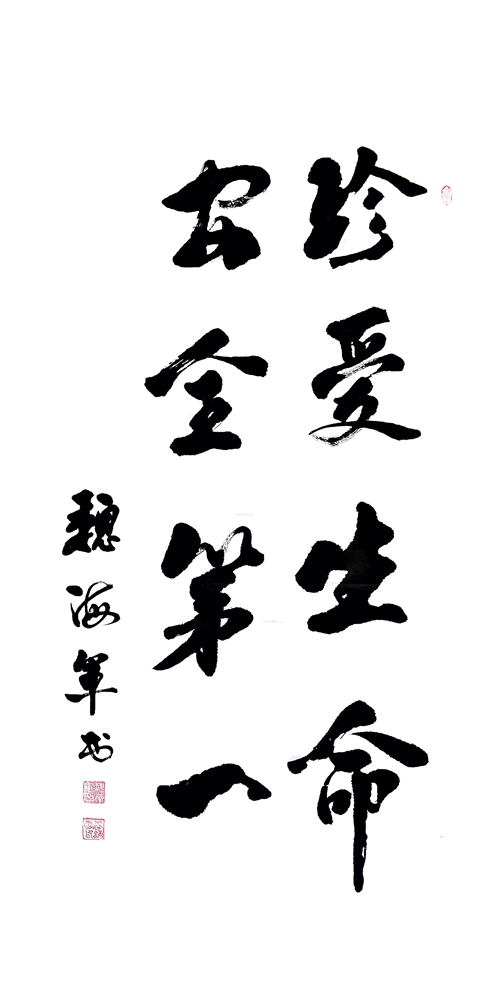 珍爱生命
安全第一
魏海军书